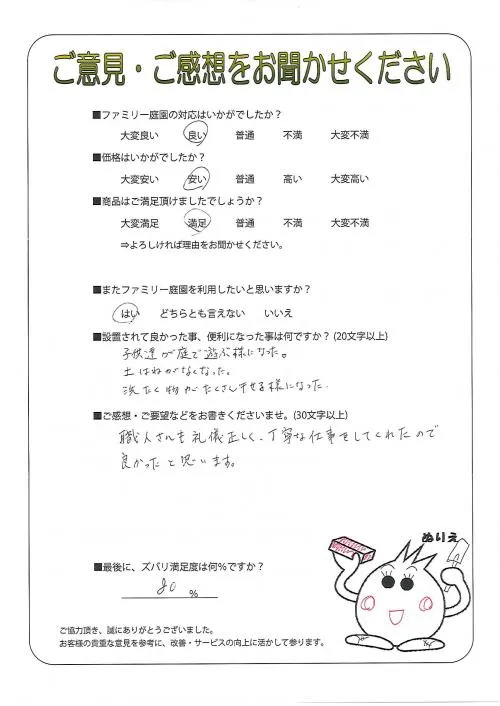 ご意見・ご感想をお聞かせください
■ファミリー庭園の対応はいかがでしたか？
大変良い 良い 普通 不満 大変不満
■価格はいかがでしたか？
大変安い 安い 普通 高い 大変高い
■商品はご満足頂けましたでしょうか？
大変満足 満足 普通 不満 大変不満
⇒よろしければ理由をお聞かせください。
■またファミリー庭園を利用したいと思いますか？
はい どちらとも言えない いいえ
■設置されて良かった事、便利になった事は何ですか？(20文字以上)
子供達が庭で遊ぶ様になった。
土はねがなくなった。
洗たく物がたくさん干せる様になった.
■ご感想・ご要望などをお書きくださいませ。(30文字以上)
職人さんも礼儀正しく、丁寧な仕事をしてくれたので
良かったと思います。
ぬりえ
■最後に、ズバリ満足度は何％ですか？
80 ％
ご協力頂き、誠にありがとうございました。
お客様の貴重な意見を参考に、改善・サービスの向上に活かして参ります。